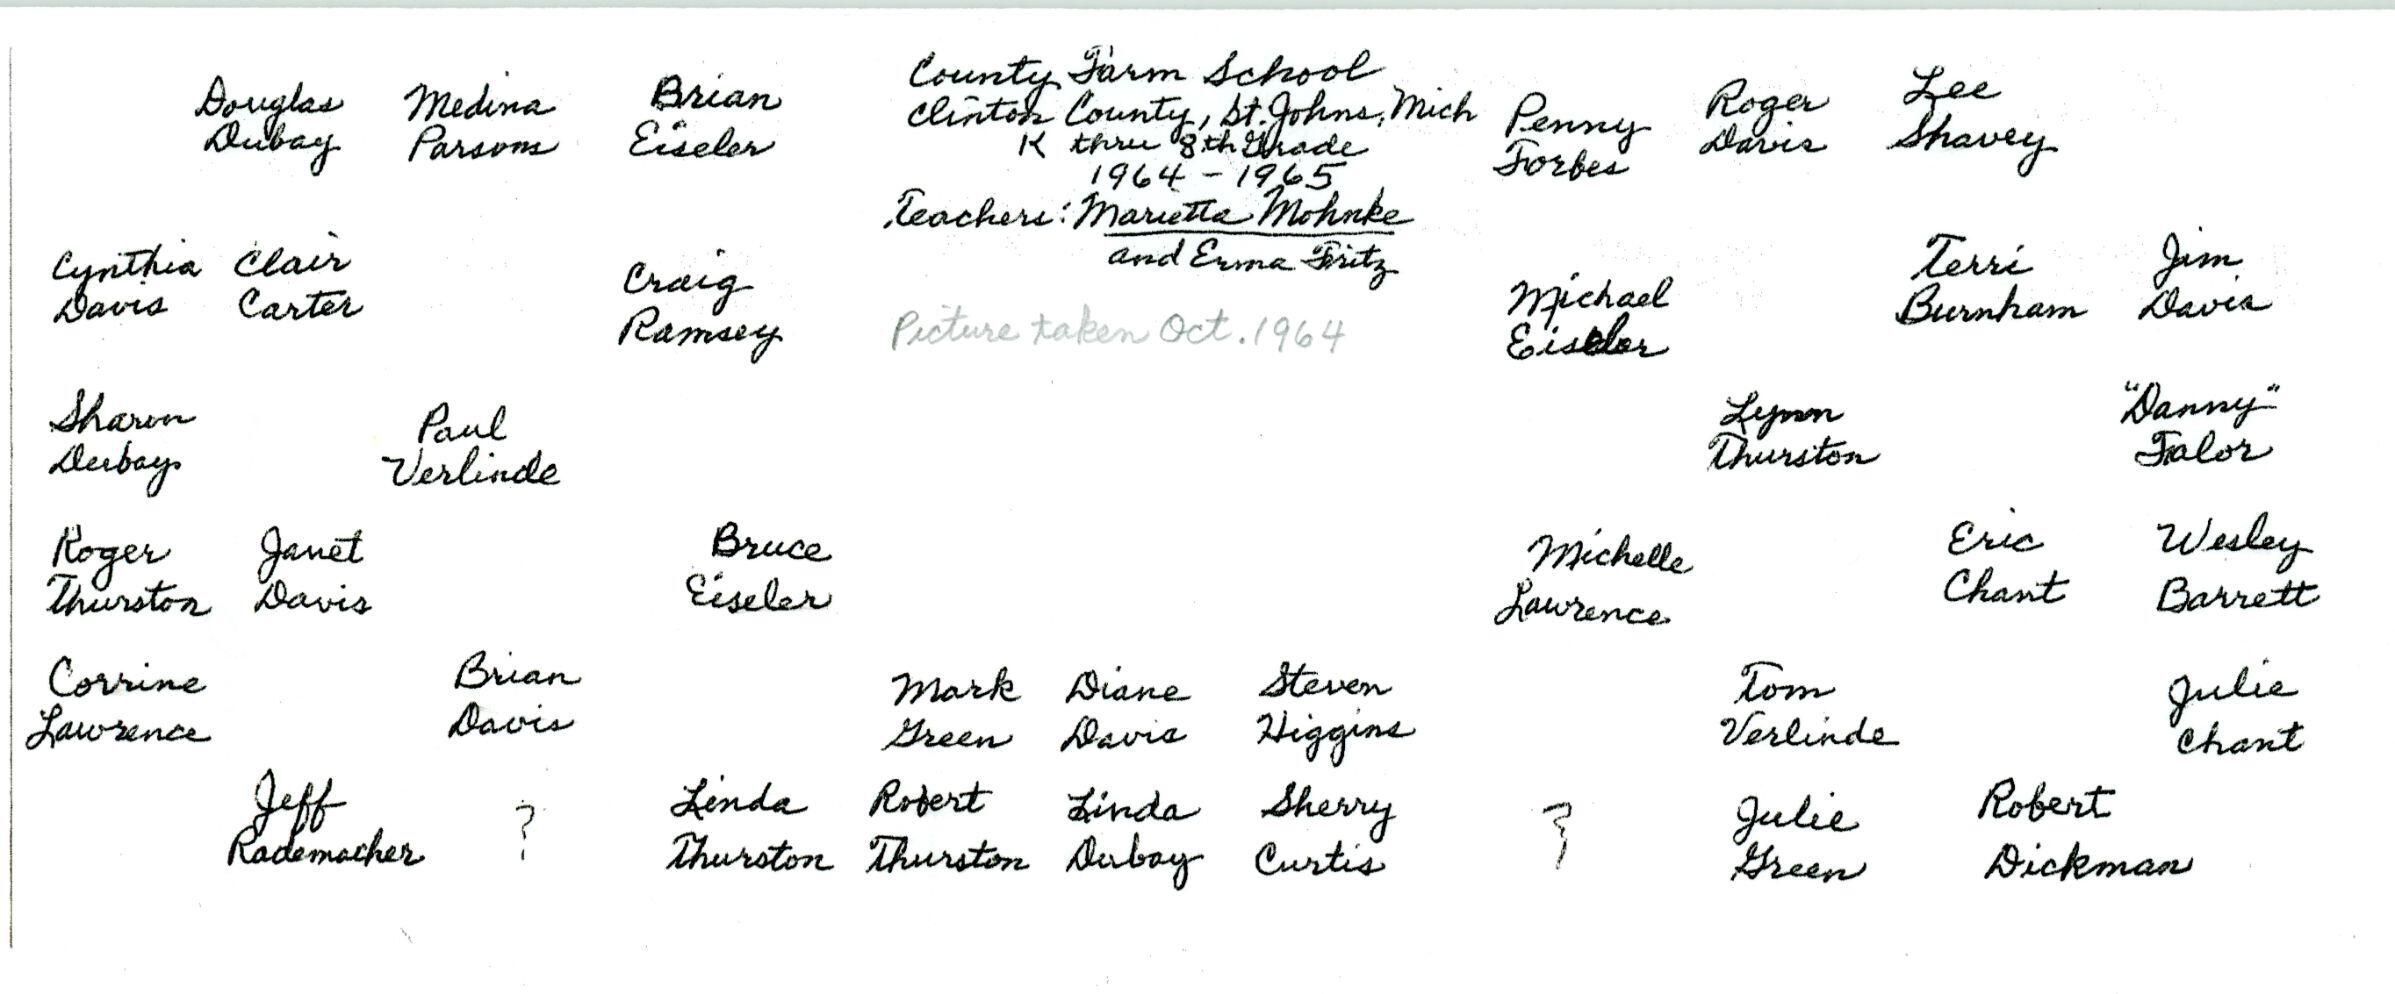 Douglas Medina Brian County Farm School Penny Roger Lee
Dubay Parsons Eiseler Clinton County, St. Johns, Mich Forbes Davis Shavey
K thru 8th Grade
1964 - 1965
Teachers: Marietta Mohnke
and Erma Fritz
Cynthia Clair Craig Michael Terri Jim
Davis Carter Ramsey Eiseler Burnham Davis
Picture taken Oct. 1964
Sharon Paul Lynn "Danny"
Dubay Verlinde Thurston Falor
Roger Janet Bruce Michelle Eric Wesley
Thurston Davis Eiseler Lawrence Chant Barrett
Corrine Brian Mark Diane Steven Tom Julie
Lawrence Davis Green Davis Higgins Verlinde Chant
Jeff ? Linda Robert Linda Sherry ? Julie Robert
Rademacher Thurston Thurston Dubay Curtis Green Dickman